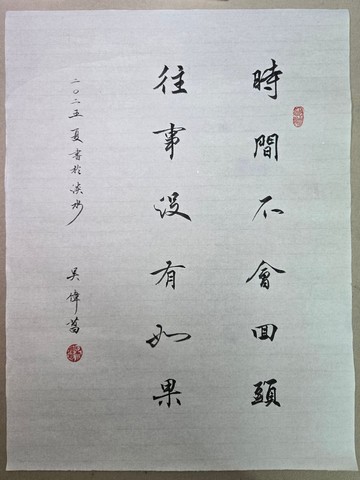 時間不會回頭
往事沒有如果
二〇二五夏書於淡水
吳偉